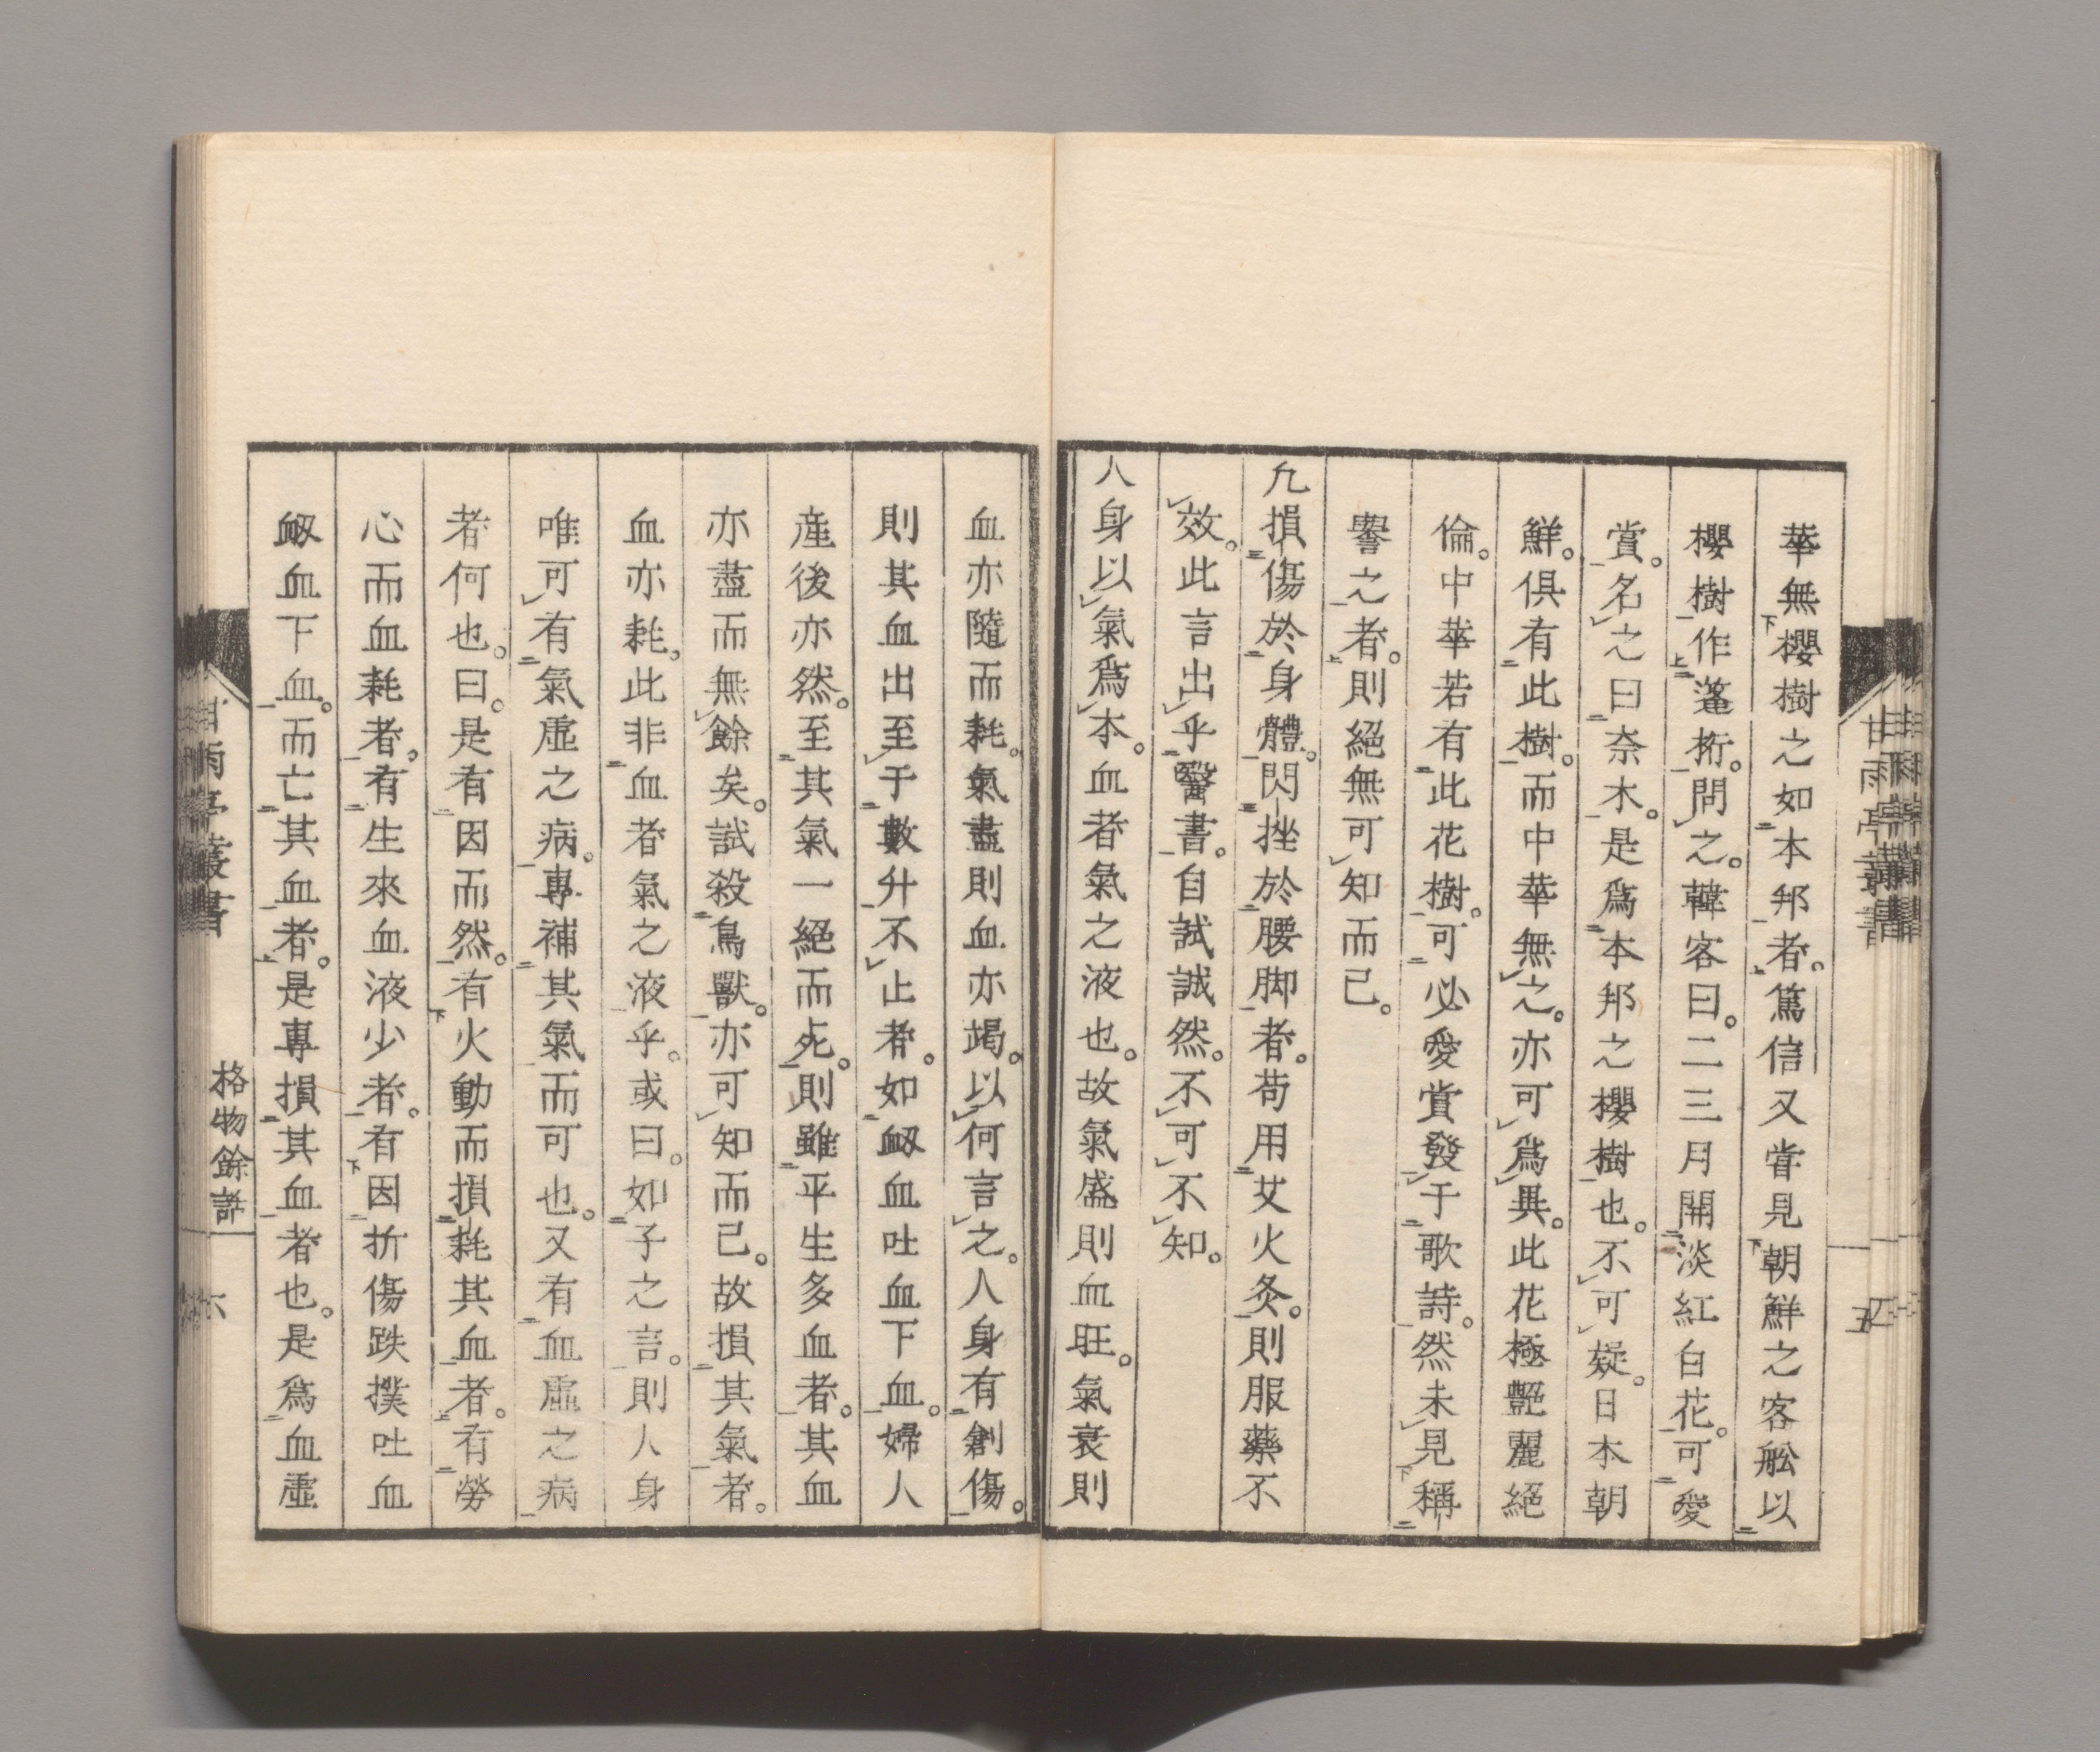 華無櫻樹之如本邦者。篤信又甞見朝鮮之客舩以
櫻樹作蓬桁。問之。韓客曰。二三月開淡紅白花。可愛
賞。名之曰奈木。是爲本邦之櫻樹也。不可疑。日本朝
鮮。俱有此樹。而中華無之。亦可爲異。此花極艷麗絕
倫。中華若有此花樹。可必愛賞發于歌詩。然未見稱
譽之者。則絕無可知而已。
凡損傷於身體。閃挫於腰脚者。苟用艾火灸。則服藥不
效。此言出乎醫書。自試誠然。不可不知。
人身以氣爲本。血者氣之液也。故氣盛則血旺。氣衰則
血亦隨而耗。氣盡則血亦竭。以何言之。人身有創傷。
則其血出至于數升不止者。如衂血吐血下血。婦人
產後亦然。至其氣一絕而死。則雖平生多血者。其血
亦盡而無餘矣。試殺鳥獸。亦可知而已。故損其氣者。
血亦耗。此非血者氣之液乎。或曰。如子之言。則人身
唯可有氣虛之病。專補其氣而可也。又有血虛之病
者何也。曰。是有因而然。有火動而損耗其血者。有勞
心而血耗者。有生來血液少者。有因折傷跌撲吐血
衂血下血。而亡其血者。是專損其血者也。是爲血虛
甘雨亭叢書
五
甘雨亭叢書
格物餘話
六